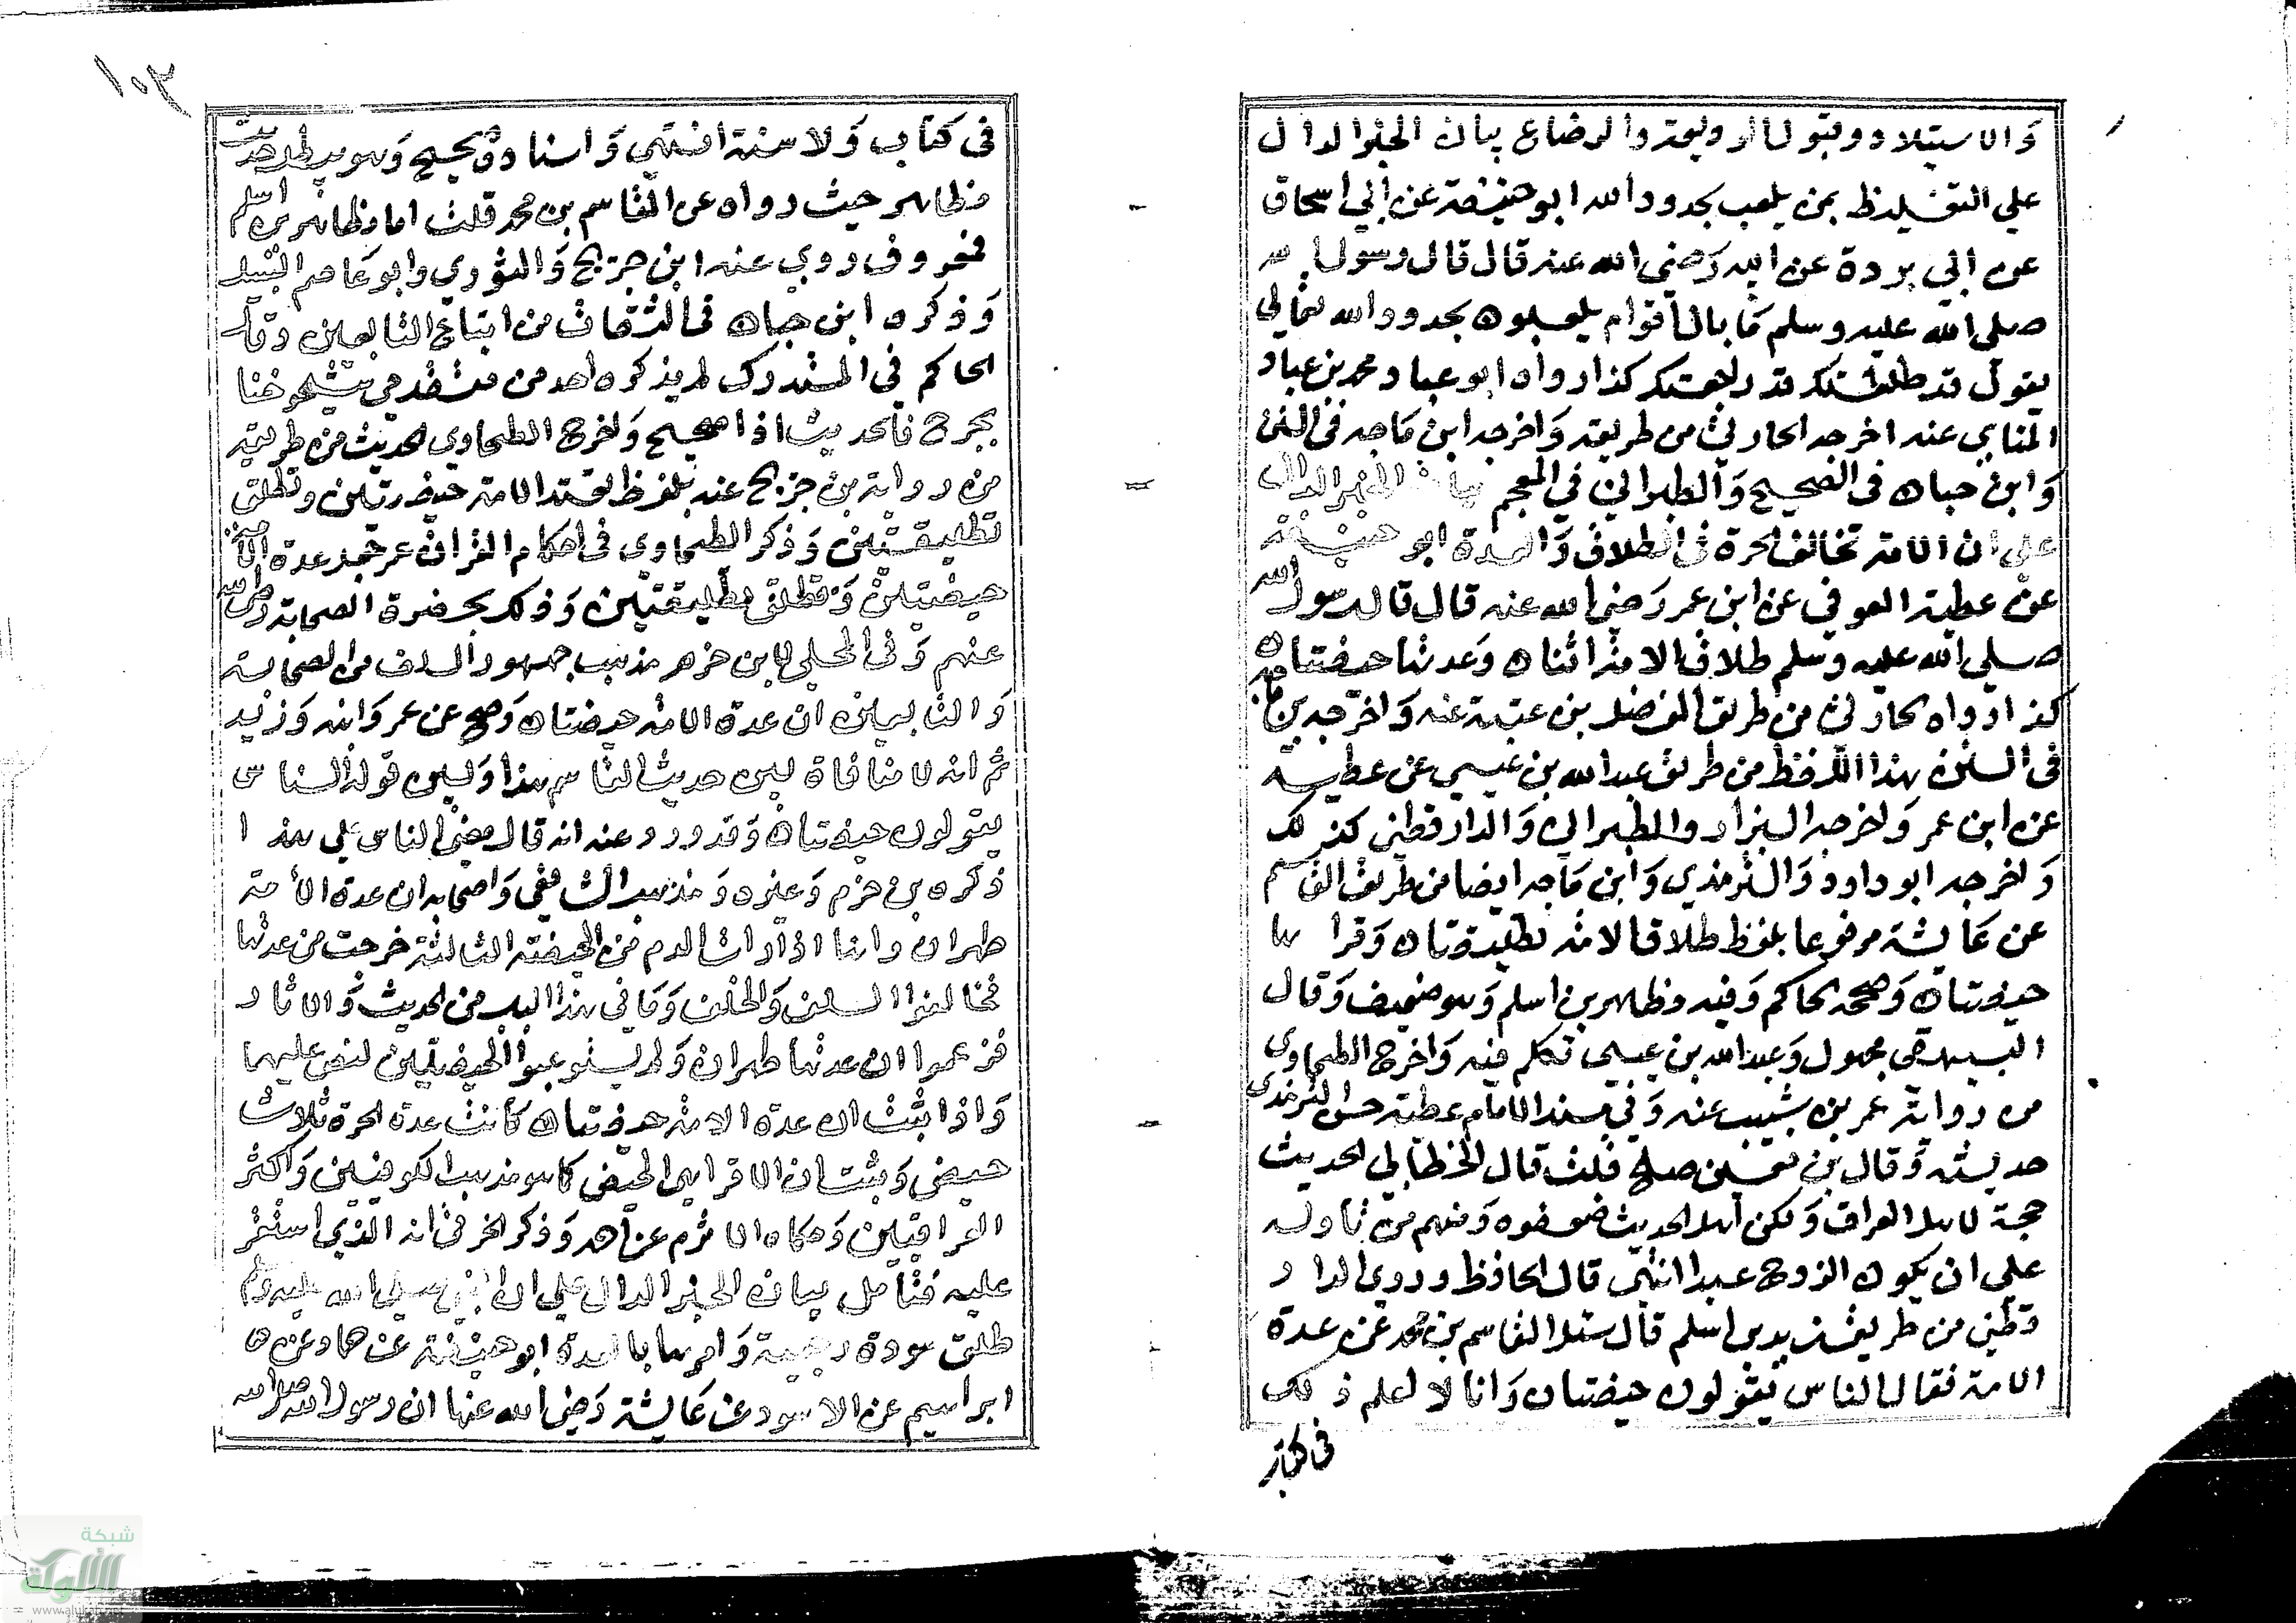 والاستيلاد وقبول الرد ويعد والرضاع بيان الخبر الدال
علي التغليظ بمن يلعب بحدود الله ابو حنيفة عن ابي اسحاق
عن ابي بردة عن ابيه رضي الله عنه قال قال رسول الله
صلي الله عليه وسلم ما بال اقوام يلعبون بحدود الله تعالي
يقول قد طلقتك قد راجعتك كذا رواه ابو عباد محمد بن عباد
الهنايي عنه اخرجه الحارثي من طريقه واخرجه ابن ماجه في السنن
وابن حبان في الصحيح والطبراني في المعجم بيان الخبر الدال
علي ان الامة تخالف الحرة في الطلاق والعدة ابو حنيفة
عن عطية العوفي عن ابن عمر رضي الله عنه قال قال رسول الله
صلي الله عليه وسلم طلاق الامة اثنان وعدتها حيضتان
كذا رواه الحارثي من طريق الفضل بن عتبة عنه واخرجه بن ماجه
في السنن بهذا اللفظ من طريق عبد الله بن عيسي عن عطية
عن ابن عمر واخرجه البزار والطبراني والدارقطني كذلك
واخرجه ابو داود والترمذي وابن ماجه ايضا من طريق القاسم
عن عايشة مرفوعا بلفظ طلاق الامة تطليقتان وقراها
حيضتان وصححه الحاكم وفيه مظاهر بن اسلم وهو ضعيف وقال
البيهقي مجهول وعبد الله بن عيسي تكلم فيه واخرج الطحاوي
من رواية عمر بن شبيب عنه وفي مسند الامام عطية حسن الترمذي
حديثه وقال بن معين صالح قلت قال الخطابي الحديث
حجة لاهل العراق ولكن اهل الحديث ضعفوه ومنهم من تاوله
علي ان يكون الزوج عبدا انتهي قال الحافظ وروي الدار
قطني من طريق زيد بن اسلم قال سئل القاسم بن محمد عن عدة
الامة فقال الناس يقولون حيضتان وانا لا نعلم ذلك
في كتاب
١٠٣
في كتاب ولا سنة انتهي واسناده صحيح وهو يرد حديث
مظاهر حيث رواه عن القاسم بن محمد قلت اما مظاهر بن اسلم
فمعروف روي عنه ابن جريج والثوري وابو عاصم النبيل
وذكره ابن حبان في الثقات من اتباع التابعين وقال
الحاكم في المستدرك لم يذكره احد من متقدمي شيوخنا
بجرح فالحديث اذا صحيح واخرج الطحاوي الحديث من طريقه
من رواية بن جريج عنه بلفظ تعتد الامة حيضتين وتطلق
تطليقتين وذكر الطحاوي في احكام القران عن عمر عدة الامة
حيضتين وتطلق تطليقتين وذلك بحضرة الصحابة رضي الله
عنهم وفي المحلي لابن حزم مذهب جمهور السلف من الصحابة
والتابعين ان عدة الامة حيضتان وصح عن عمر وابنه وزيد
ثم انه لا منافاة بين حديث القاسم هذا وبين قوله الناس
يقولون حيضتان وقد ورد عنه انه قال مضي الناس علي هذا
ذكره بن حزم وغيره ومذهب الشافعي واصحابه ان عدة الامة
طهران وانها اذا رات الدم من الحيضة الثالثة خرجت من عدتها
فخالفوا السلف والخلف وما في هذا الباب من الحديث والاثار
فزعموا ان عدتها طهران ولم يستوعبوا الحيضتين لنص عليهما
واذا ثبت ان عدة الامة حيضتان كانت عدة الحرة ثلاث
حيض وثبت ان الاقرا هي الحيض كما هو مذهب الكوفيين واكثر
العراقيين وحكاه الاثرم عن احمد وذكر الخرقي انه الذي استقر
عليه فتامل بيان الخبر الدال علي ان النبي صلي الله عليه وسلم
طلق سودة رجعية وامرها بالعدة ابو حنيفة عن حماد عن
ابراهيم عن الاسود عن عايشة رضي الله عنها ان رسول الله صلي الله
شبكة
الألوكة
www.alukah.net